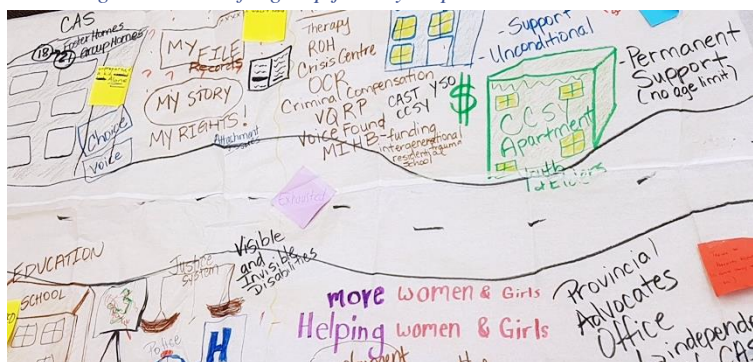 CAS
18 → Foster Homes
21 Group Homes
Choice
Voice
MY FILE
Records
MY STORY
MY RIGHTS!
Attachment
Issues
Therapy
ROH
Crisis Centre
OCR
Criminal Compensation
VQRP
Voice Found
MIHB-funding
intergenerational
residential trauma
school
CAST YSO
CCSY
$
- Support
- Unconditional
CCSY
Apartment
- Permanent
Support
(no age limit)
Exhausted
EDUCATION
SCHOOL
Justice
System
Police
H
Visible
and
Invisible
Disabilities
more women & Girls
Helping women & Girls
Provincial
Advocates
Office
independent